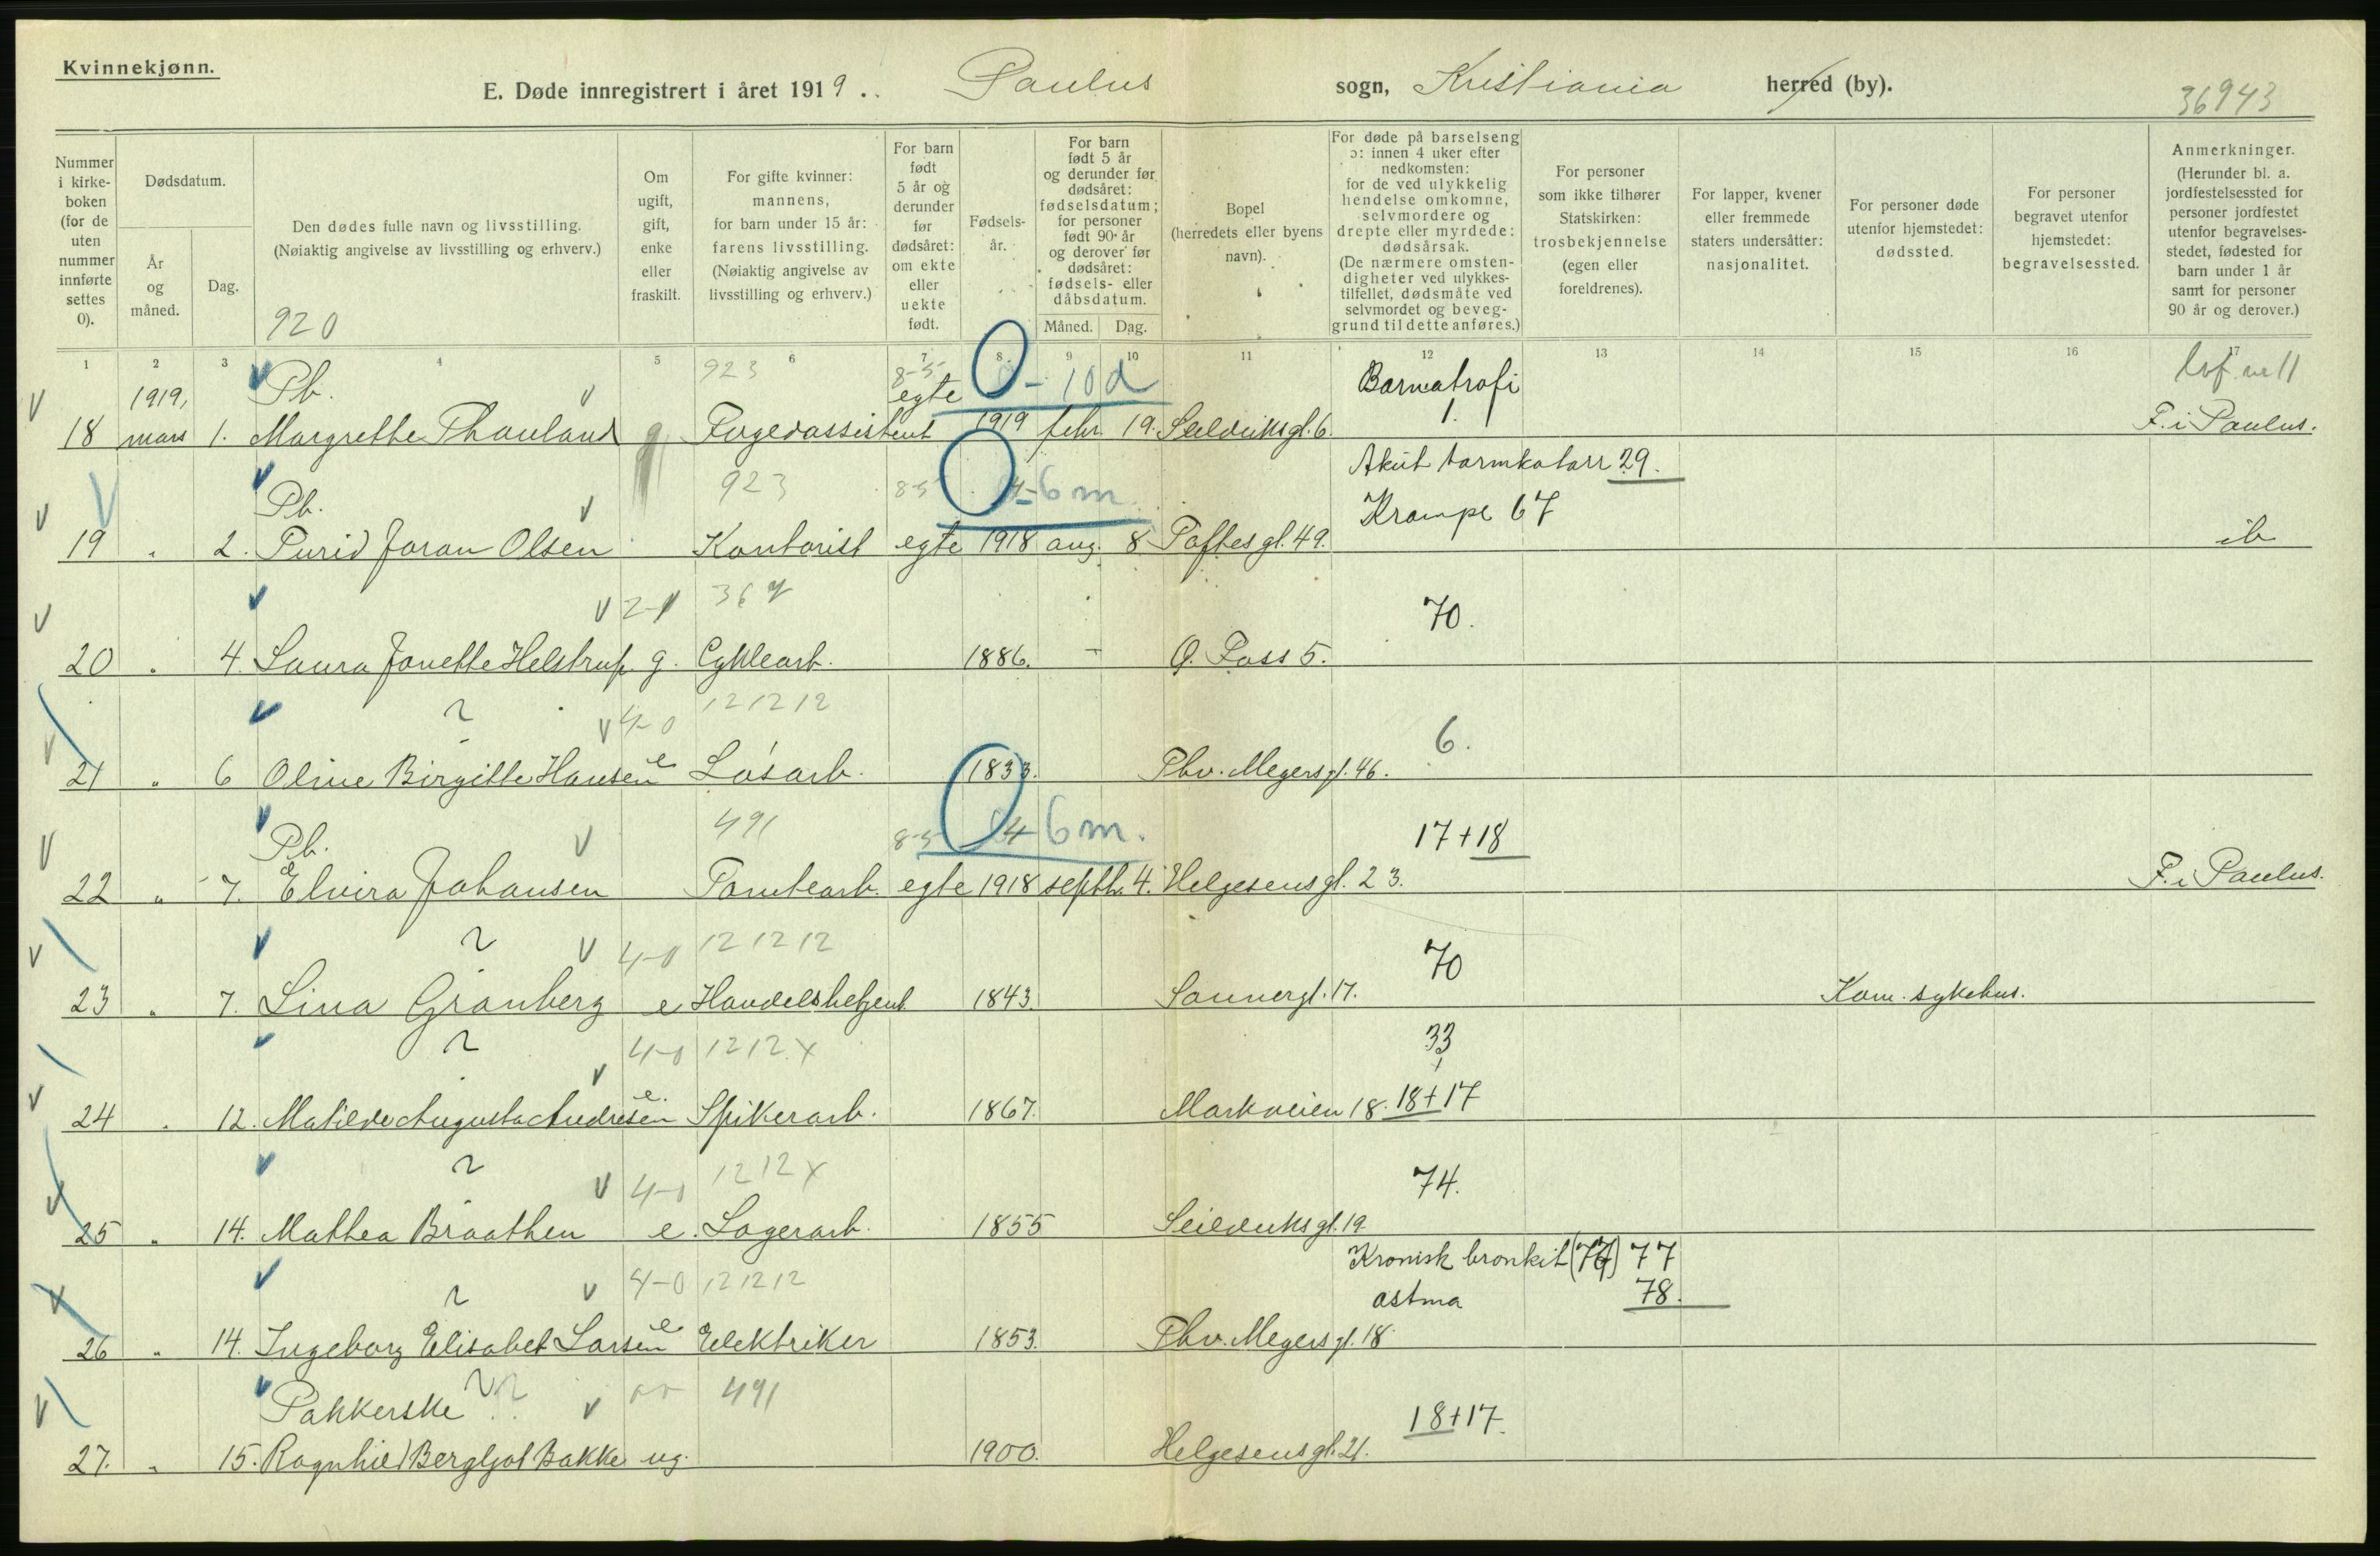 Kvinnekjønn.
E. Døde innregistrert i året 1919. Paulus sogn, Kristiania herred (by).
36943
Nummer i kirkeboken (for de uten nummer innførte settes 0).
Dødsdatum.
År og måned.
Dag.
Den dødes fulle navn og livsstilling.
(Nøiaktig angivelse av livsstilling og erhverv.)
920
Om ugift, gift, enke eller fraskilt.
For gifte kvinner: mannens, for barn under 15 år: farens livsstilling.
(Nøiaktig angivelse av livsstilling og erhverv.)
For barn født 5 år og derunder før dødsåret: om ekte eller uekte født.
Fødselsår.
For barn født 5 år og derunder før dødsåret: fødselsdatum; for personer født 90 år og derover før dødsåret: fødsels- eller dåbsdatum.
Måned. Dag.
Bopel (herredets eller byens navn).
For døde på barselseng ɔ: innen 4 uker efter nedkomsten: for de ved ulykkelig hendelse omkomne, selvmordere og drepte eller myrdede: dødsårsak. (De nærmere omstendigheter ved ulykkestilfellet, dødsmåte ved selvmordet og beveggrund til dette anføres.)
For personer som ikke tilhører Statskirken: trosbekjennelse (egen eller foreldrenes).
For lapper, kvener eller fremmede staters undersåtter: nasjonalitet.
For personer døde utenfor hjemstedet: dødssted.
For personer begravet utenfor hjemstedet: begravelsessted.
Anmerkninger.
(Herunder bl. a. jordfestelsessted for personer jordfestet utenfor begravelsesstedet, fødested for barn under 1 år samt for personer 90 år og derover.)
1 2 3 4 5 6 7 8 9 10 11 12 13 14 15 16 17
1919, Pb. 923 8-5 egte 0-10d Barnatrofi
18 mars 1. Margrethe Thauland Fogedassistent 1919 febr. 19. Seilduksgt. 6. 1. F. i Paulus.
Pb. 923 8-5 6 m. Akut tarmkatarr 29.
Krampe 67
19 " 2. Turid Joran Olsen Kontorist egte 1918 aug. 8 Toftesgt. 49. ib
2-1 70.
20 " 4. Laura Janette Helstrup g. Cyklearb. 1886. - Ø. Foss 5.
4-0 12 12 12 6.
21 " 6 Oline Birgitte Hansen e Løsarb. 1833. Thv. Meyersgt. 46.
Pb. 491 8-5 6 m. 17+18
22 " 7. Elvira Johansen Tomtearb. egte 1918 septb. 4. Helgesensgt. 23. F. i Paulus.
4-0 12 12 12 70
23 " 7. Lina Granberg e Handelsbetjent 1843. Sannergt. 17. Kom. sykehus.
4-0 12 12 x 33
24 " 12. Matilde Augusta Andresen e. Spikerarb. 1867. Markveien 18. 18+17
4-0 12 12 x 74.
25 " 14. Mathea Braathen e. Lagerarb. 1855 Seilduksgt. 19
4-0 12 12 12 Kronisk bronkit 77
astma 78.
26 " 14. Ingeborg Elisabet Larsen e Elektriker 1853. Thv. Meyersgt. 18.
Pakkerske 491 18+17.
27. " 15. Ragnhild Bergljot Bakke ug. 1900. Helgesensgt. 21.